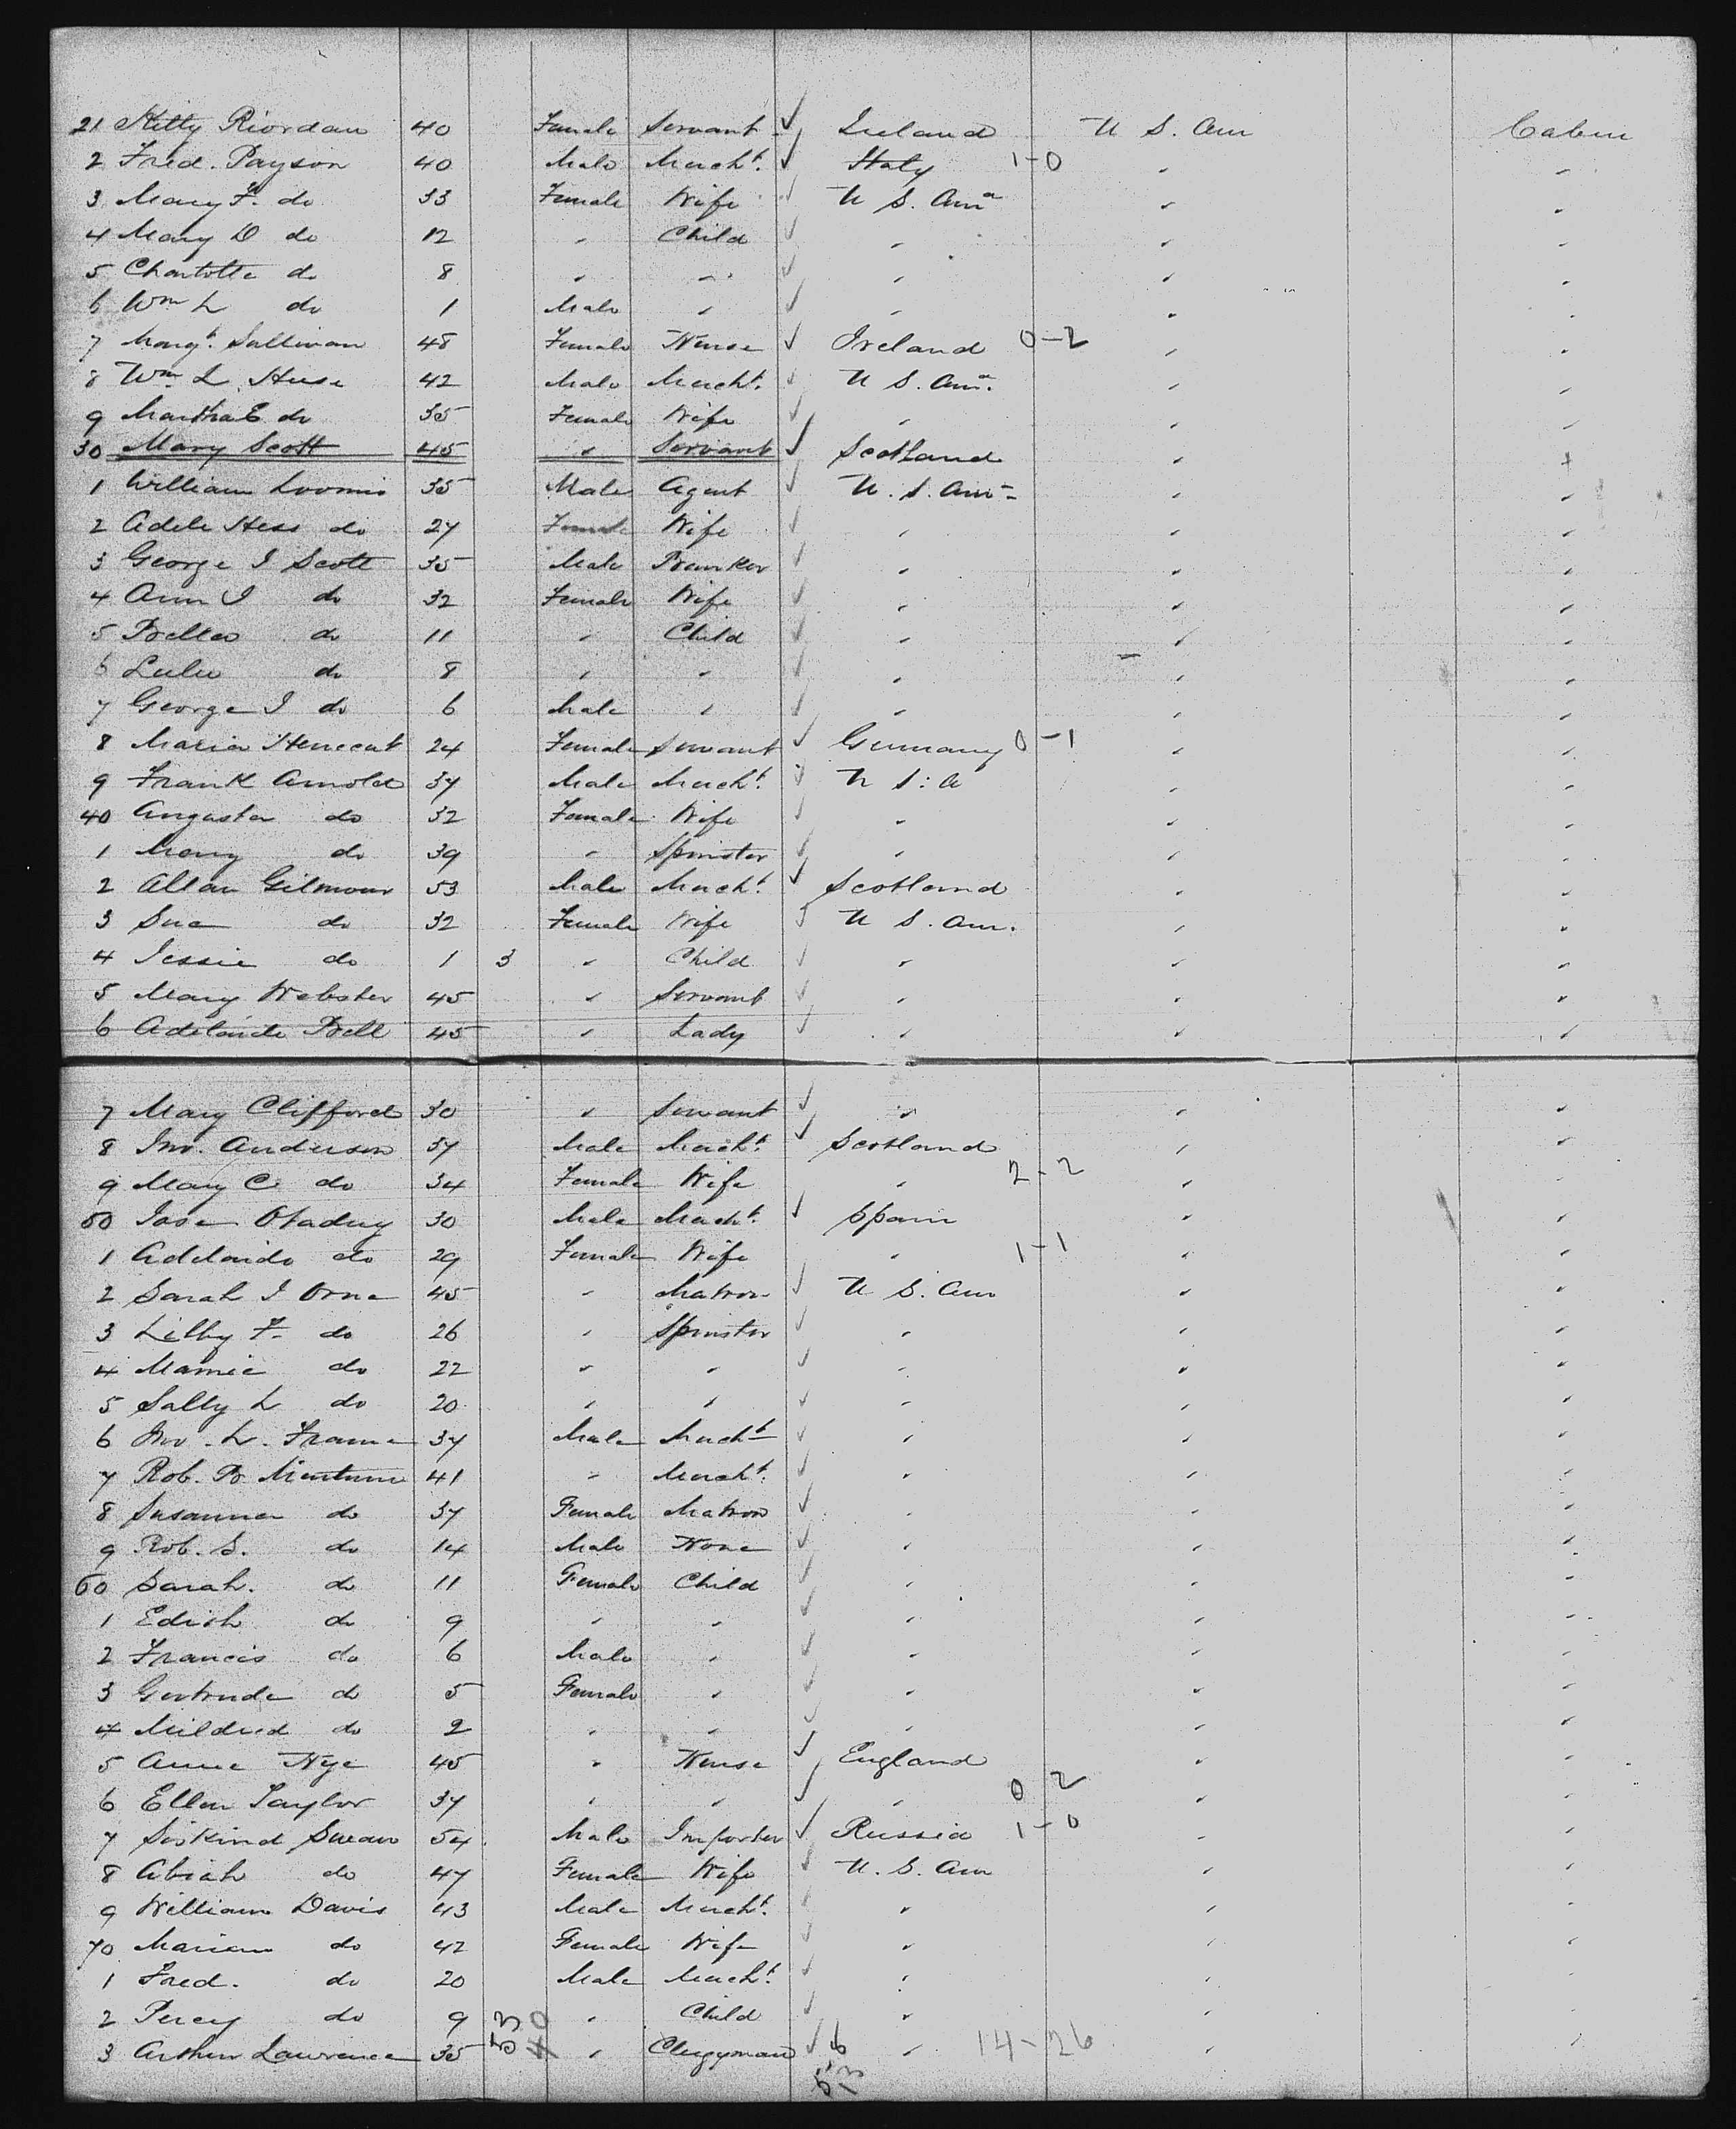 21 Kitty Riordan 40 Female Servant Ireland U S. Am Cabin
2 Fred. Payson 40 Male Mercht. Italy 1-0 " "
3 Mary F. do 33 Female Wife U S. Ama " "
4 Mary D do 12 " Child " " "
5 Charlotte do 8 " " " " "
6 Wm L do 1 Male " " " "
7 Margt. Sullivan 48 Female Nurse Ireland 0-2 " "
8 Wm L. Huse 42 Male Mercht. U S. Ama. " "
9 Martha E do 35 Female Wife " " "
30 Mary Scott 45 " Servant Scotland " "
1 William Loomis 35 Male Agent U. S. Am " "
2 Adele Hess do 27 Female Wife " " "
3 George I Scott 35 Male Banker " " "
4 Ann I do 32 Female Wife " " "
5 Bella do 11 " Child " " "
6 Lulu do 8 " " " " "
7 George I do 6 Male " " " "
8 Maria 24 Female Servant Germany 0-1 " "
9 Frank Arnold 37 Male Mercht. U S: A " "
40 Augusta do 32 Female Wife " " "
1 Mary do 39 " Spinster " " "
2 Allan Gilmour 53 Male Mercht. Scotland " "
3 Sue do 32 Female Wife U S. Am. " "
4 Jessie do 1 3 " Child " " "
5 Mary Webster 45 " Servant " " "
6 Adelaide Bell 45 " Lady " " "
7 Mary Clifford 30 " Servant " " "
8 Jno. Anderson 37 Male Mercht. Scotland " "
9 Mary C do 34 Female Wife " 2-2 " "
50 Jose Otaduy 30 Male Mercht. Spain " "
1 Adelaide do 29 Female Wife " 1-1 " "
2 Sarah I Orne 45 " Matron U S. Am " "
3 Lilly F. do 26 " Spinster " " "
4 Mamie do 22 " " " " "
5 Sally L do 20 " " " " "
6 Jno. L. Frame 37 Male Mercht " " "
7 Rob. B. Minturn 41 " Mercht. " " "
8 Susanna do 37 Female Matron " " "
9 Rob. S. do 14 Male None " " "
60 Sarah. do 11 Female Child " " "
1 Edith do 9 " " " " "
2 Francis do 6 Male " " " "
3 Gertrude do 5 Female " " " "
4 Mildred do 2 " " " " "
5 Anne Nye 45 " Nurse England " "
6 Ellen Taylor 37 " " " 0 2 " "
7 Siskind 54 Male Importer Russia 1-0 " "
8 Abiah do 47 Female Wife U. S. Am " "
9 William Davis 43 Male Mercht. " " "
70 Marian do 42 Female Wife " " "
1 Fred. do 20 Male Mercht. " " "
2 Percy do 9 " Child " " "
3 Arthur Lawrence 35 53 40 " Clergyman 6 " 14-26 " "
53